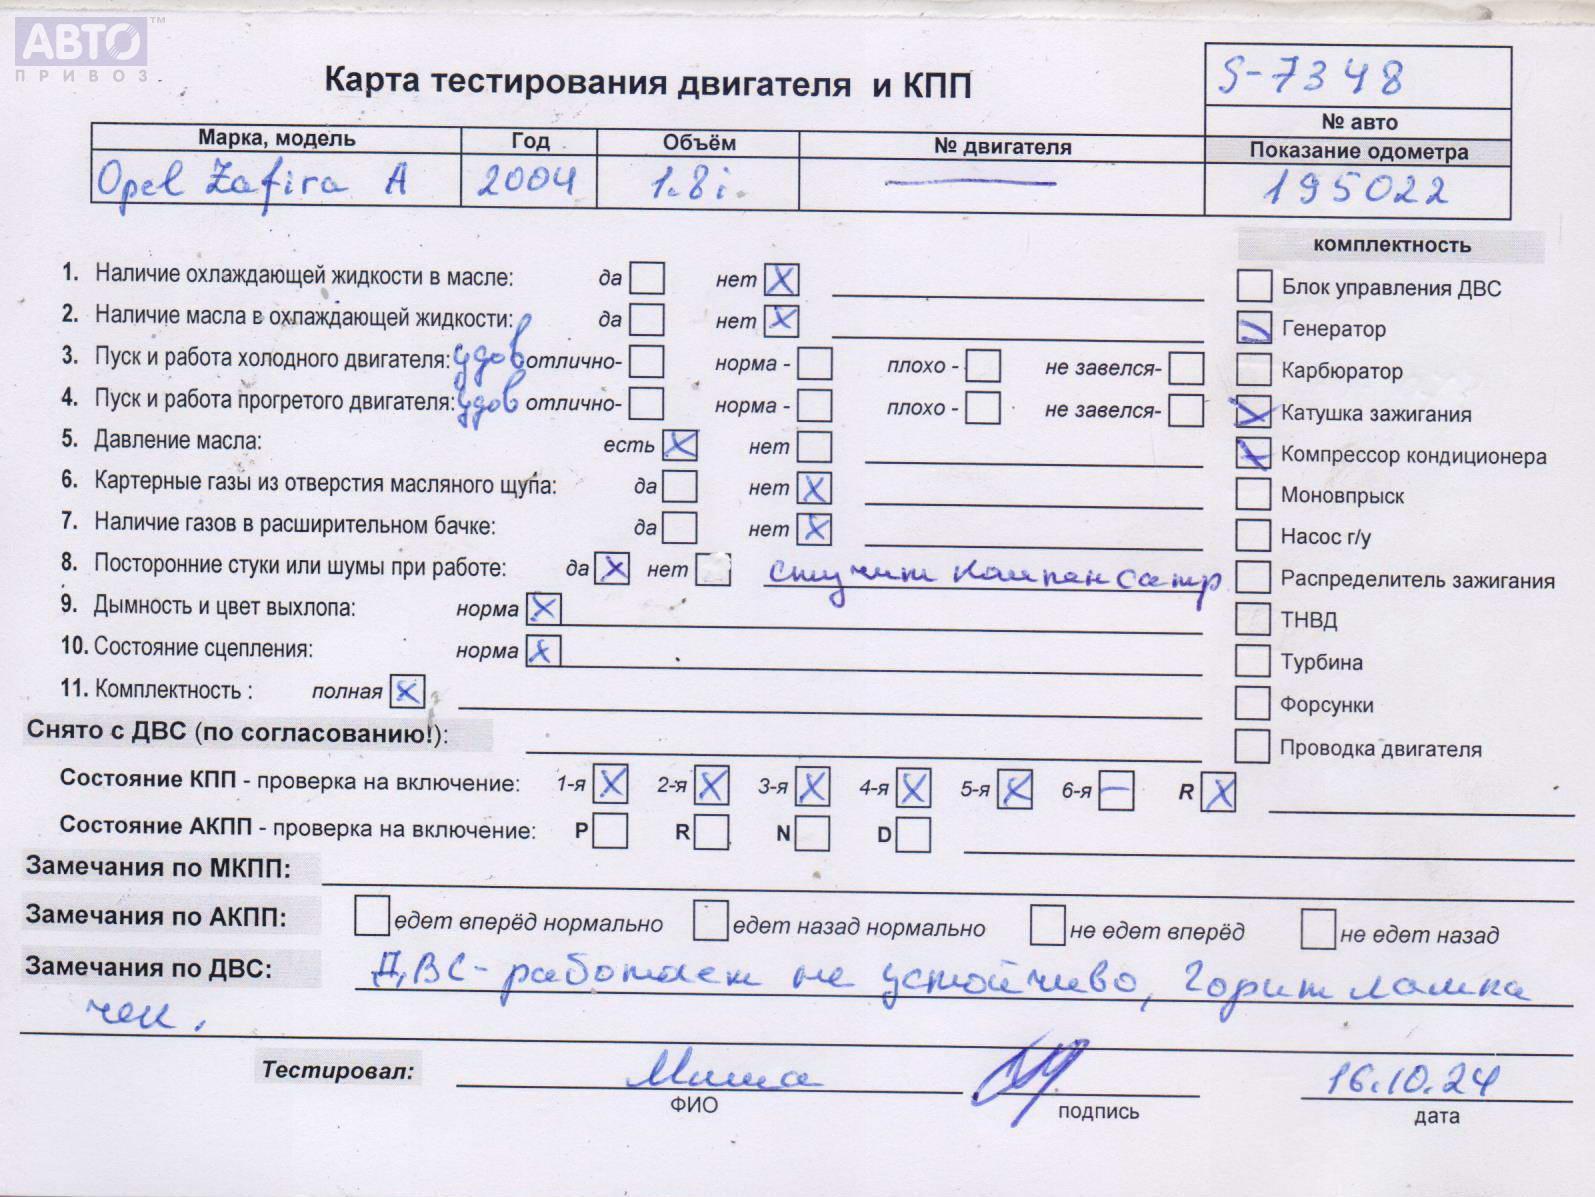 АВТО™
ПРИВОЗ
Карта тестирования двигателя и КПП
S-7348
№ авто
Марка, модель Год Объём № двигателя Показание одометра
Opel Zafira A 2004 1.8i. — 195022
комплектность
1. Наличие охлаждающей жидкости в масле: да нет X
Блок управления ДВС
2. Наличие масла в охлаждающей жидкости: да нет X
Генератор
3. Пуск и работа холодного двигателя: удов отлично- норма - плохо - не завелся-
Карбюратор
4. Пуск и работа прогретого двигателя: удов отлично- норма - плохо - не завелся-
Катушка зажигания
5. Давление масла: есть X нет
Компрессор кондиционера
6. Картерные газы из отверстия масляного щупа: да нет X
Моновпрыск
7. Наличие газов в расширительном бачке: да нет X
Насос г/у
8. Посторонние стуки или шумы при работе: да X нет стучит компенсатр
Распределитель зажигания
9. Дымность и цвет выхлопа: норма X
ТНВД
10. Состояние сцепления: норма X
Турбина
11. Комплектность : полная X
Форсунки
Снято с ДВС (по согласованию!):
Проводка двигателя
Состояние КПП - проверка на включение: 1-я X 2-я X 3-я X 4-я X 5-я X 6-я — R X
Состояние АКПП - проверка на включение: P R N D
Замечания по МКПП:
Замечания по АКПП: едет вперёд нормально едет назад нормально не едет вперёд не едет назад
Замечания по ДВС: ДВС - работает не устойчиво, Горит лампа
чек.
Тестировал: Миша 16.10.24
ФИО подпись дата